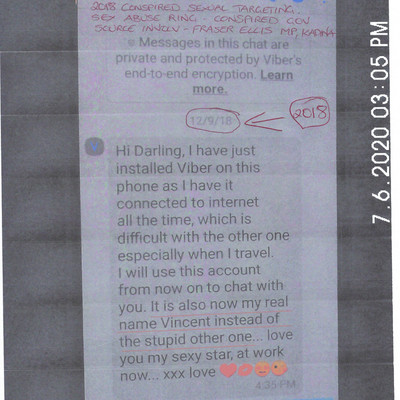 2018 CONSPIRED SEXUAL TARGETING.
SEX ABUSE RING - CONSPIRED GOV
SOURCE INVCOV - FRASER ELLIS MP, KADINA
Messages in this chat are
private and protected by Viber's
end-to-end encryption. Learn
more.
12/9/18
2018
Hi Darling, I have just
installed Viber on this
phone as I have it
connected to internet
all the time, which is
difficult with the other one
especially when I travel.
I will use this account
from now on to chat with
you. It is also now my real
name Vincent instead of
the stupid other one... love
you my sexy star, at work
now... xxx love ❤️💋😍😘
4:35 PM
7.6.2020 03:05 PM